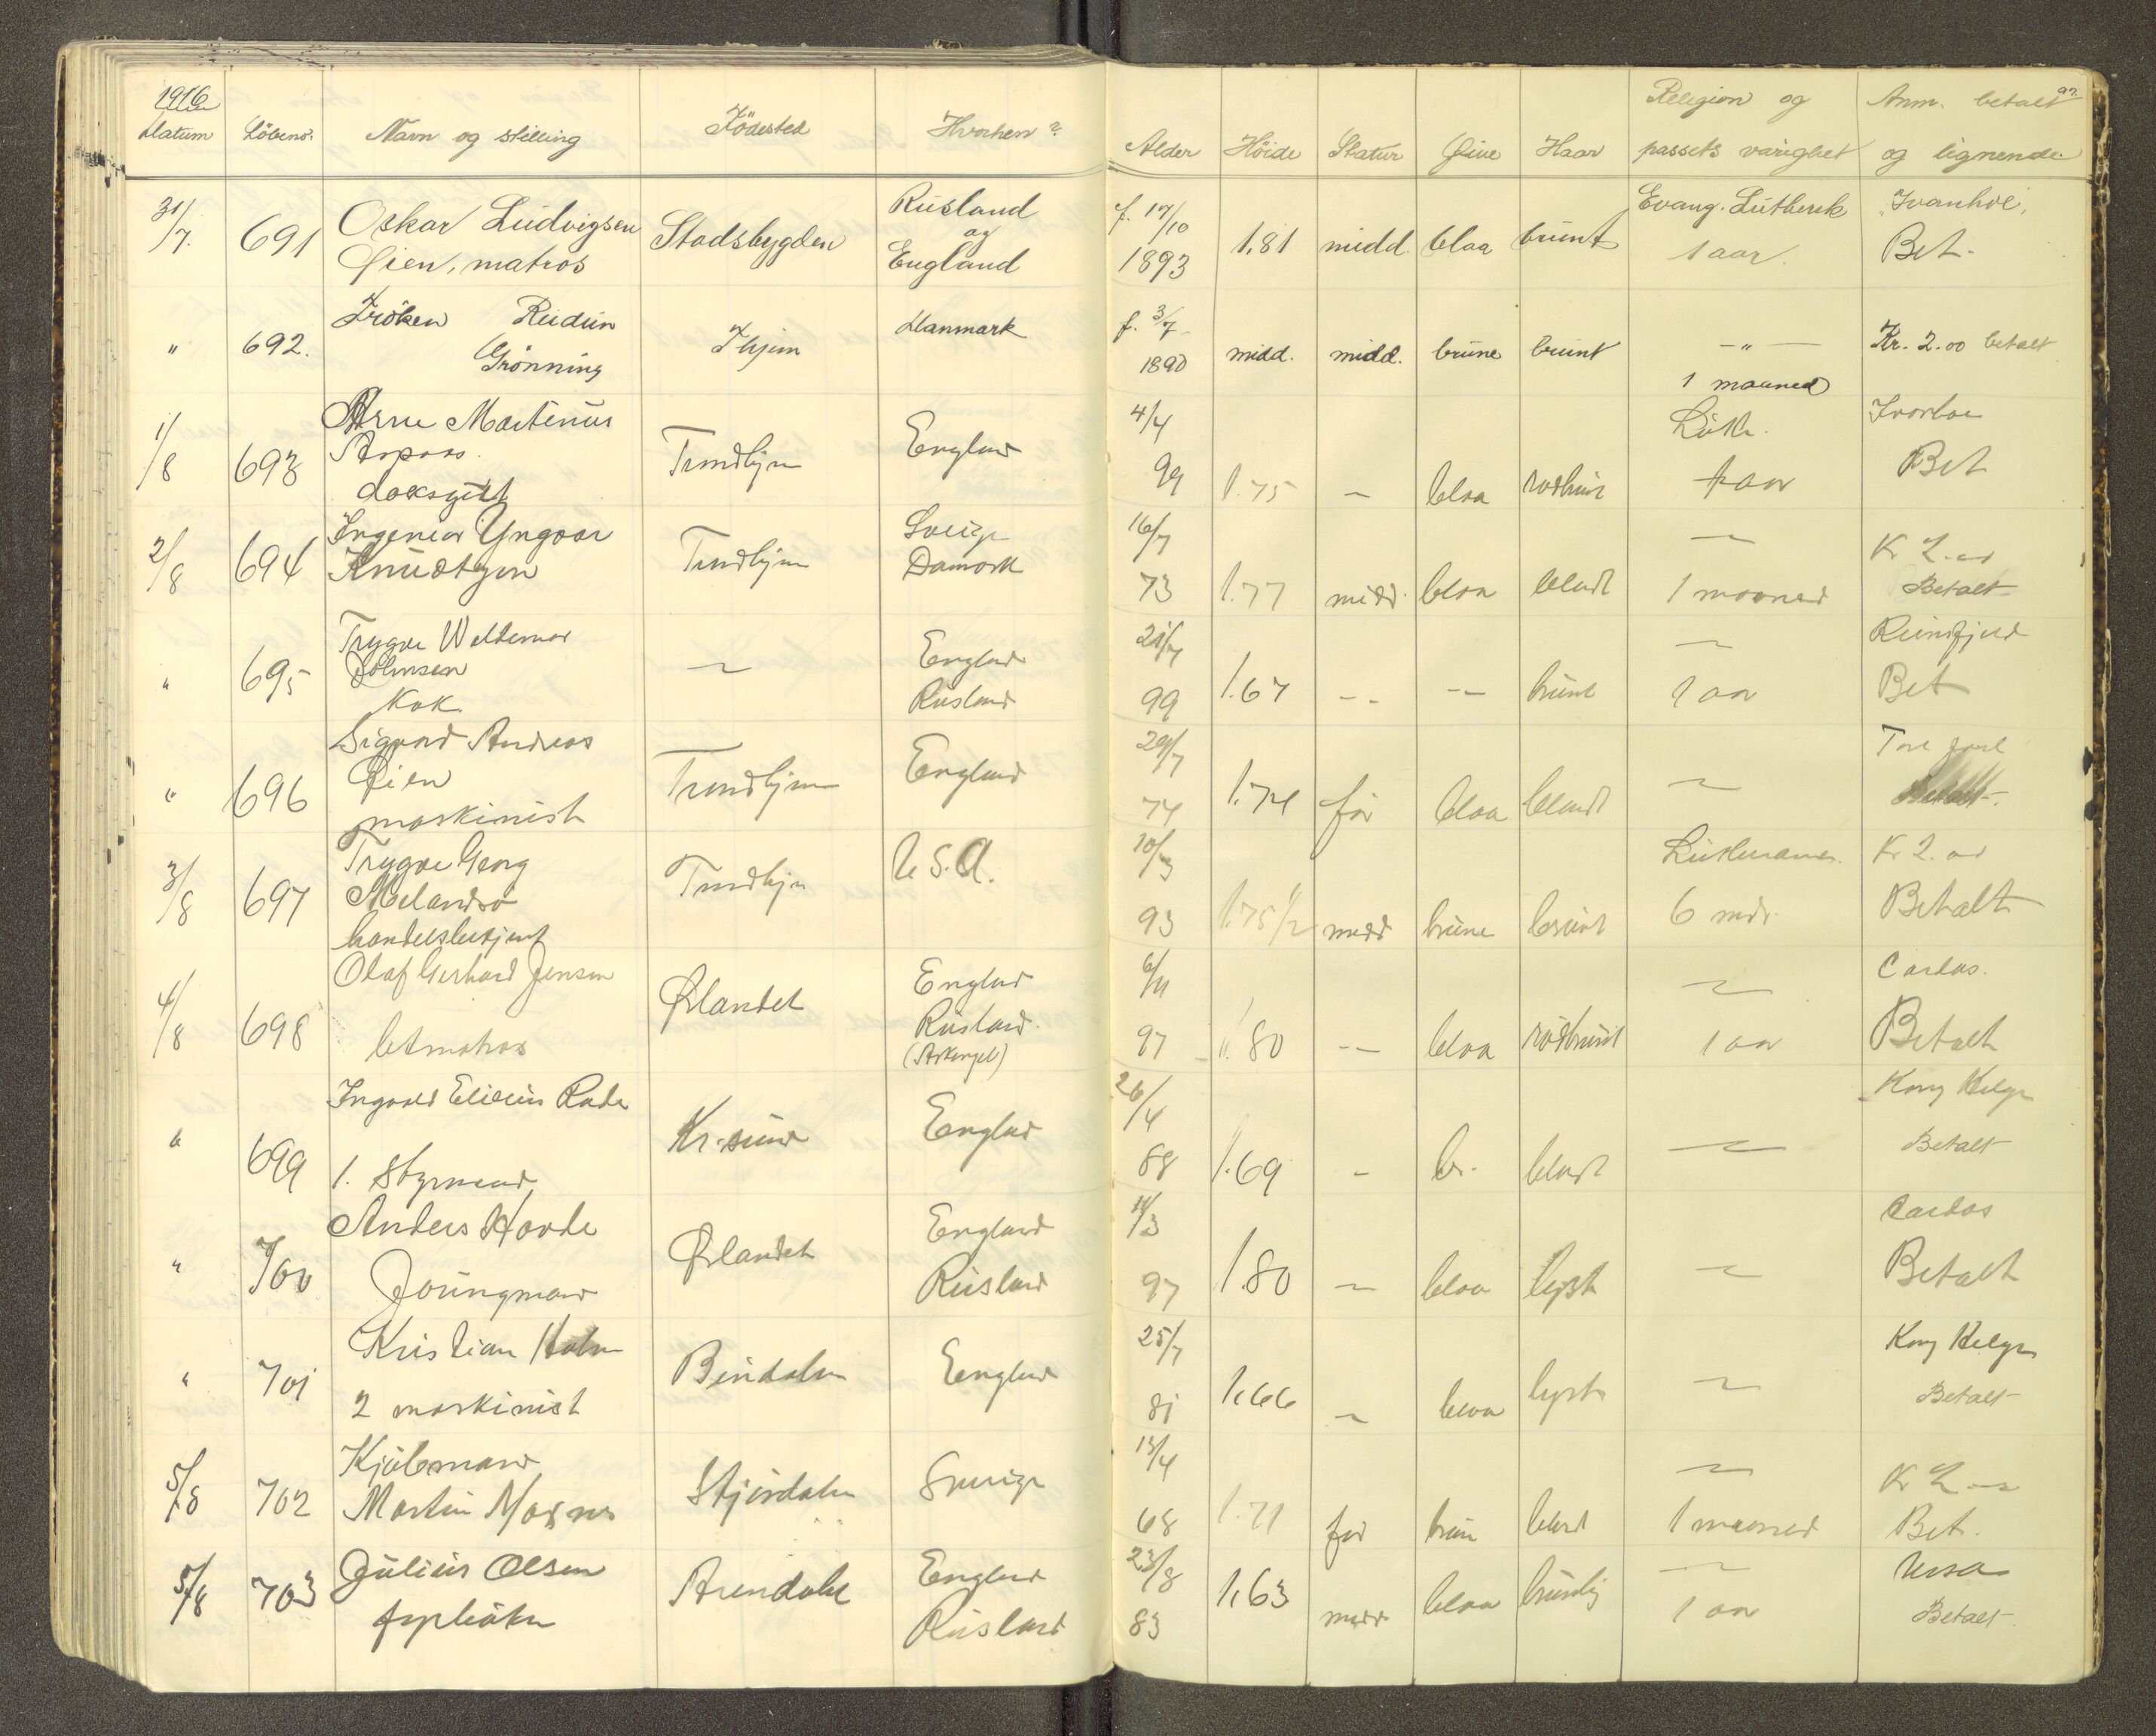 1916
Datum Löbeno. Navn og stilling Födested Hvorhen? Alder Höide Statur Øine Haar Religion og passets varighet Anm. betalt og lignende.
31/7. 691 Oskar Ludvigsen Stadsbygden Rusland f. 17/10 1.81 midd. blaa brunt Evang. Luthersk "Ivanhoe"
Øien, matros og England 1893 1 aar. Bet.
" 692. Fröken Reidun Thjem Danmark f. 3/7 midd. midd. brune brunt — " — Kr. 2.00 betalt
Grönning 1890 1 maaned
1/8 693 Arne Martinus Trondhjem England 4/4 Luth.
99 1.75 — blaa rödbrunt 1 aar Bet
2/8 694 Ingeniör Yngvar Trondhjem Sverige 16/7 — Kr 2.00
Knudtzon Danmark 73 1.77 midd. blaa blondt 1 maaned Betalt
" 695 Trygve Waldemar — England 21/7 —
Kok. Rusland 99 1.67 -- -- brunt 1 aar Bet
" 696 Sigvard Andreas Trondhjem England 29/7 Tore Jarl
Øien 74 1.74 för blaa blondt — Betalt.
maskinist
3/8 697 Trygve Georg Trondhjem U.S.A. 10/3 Kr 2.00
Melandsö 93 1.75 1/2 midd brune brunt 6 mdr. Betalt
handelsbetjent
4/8 698 Olaf Gerhard Jensen Ørlandet England 6/11 — Cardos.
letmatros Rusland. 97 1.80 -- blaa rödbrunt 1 aar Betalt
(Arkangel)
" 699 Ingvald Kr.sund England 26/4 Kong Helge
1. Styrmand 88 1.69 — br. blondt — Betalt
" 700 Anders Hovde Ørlandet England 11/3 Cardos
Joungmand Rusland 97 1.80 — blaa lyst — Betalt
" 701 Kristian Holm Bindalen England 25/7 Kong Helge
2 maskinist 81 1.66 — blaa lyst — Betalt
5/8 702 Kjöbmand Stjördalen Sverige 13/4 — Kr 2.00
Martin 68 1.71 för brun blond 1 maaned Bet.
5/8 703 Julius Olsen Arendal England 23/8 1.63 — Ursa
fyrböter Rusland 83 midd blaa brunlig 1 aar Betalt